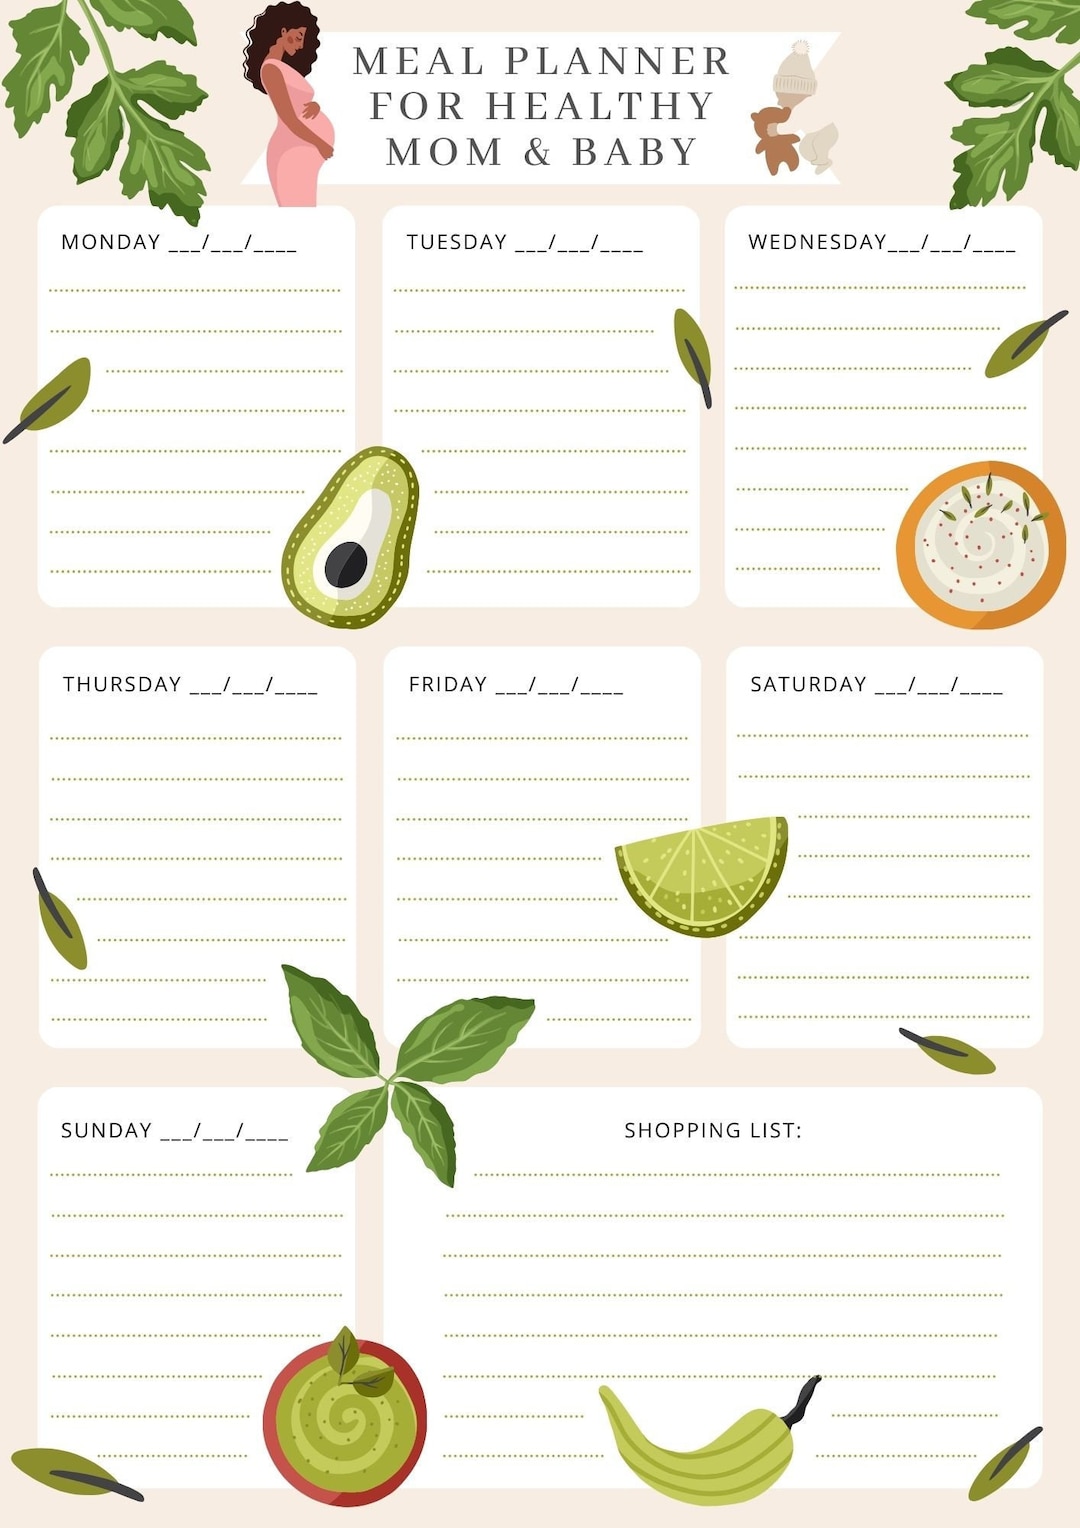 MEAL PLANNER
FOR HEALTHY
MOM & BABY
MONDAY ___/___/____
TUESDAY ___/___/____
WEDNESDAY___/___/____
THURSDAY ___/___/____
FRIDAY ___/___/____
SATURDAY ___/___/____
SUNDAY ___/___/____
SHOPPING LIST: